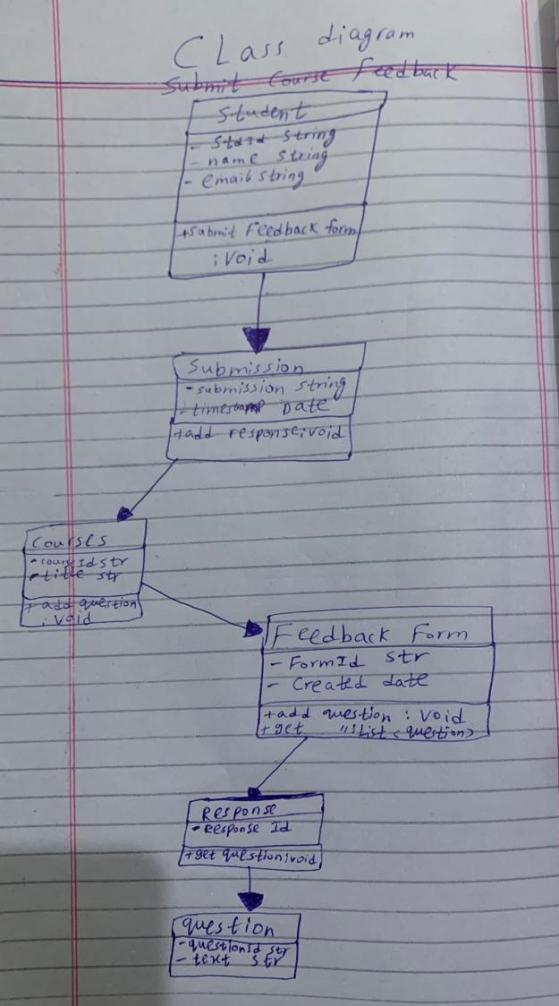 CLass diagram
Submit Course Feedback
Student
- StdId String
- name String
- email string
+submit Feedback form
: void
Submission
- submission string
- timestamp Date
+add response: void
Courses
- courseId str
- title str
+ add question
: void
Feedback Form
- FormId str
- Created date
+add question : void
+get ": List <question>
Response
- Response Id
+get question: void
question
- questionId str
- text str